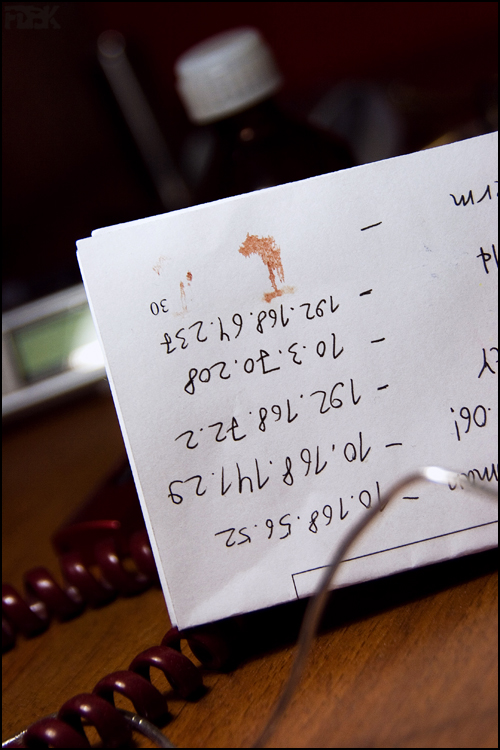 man - 10.168.56.52
06! - 10.168.141.29
- 192.168.72.2
- 10.3.70.208
- 192.168.64.237
-
30